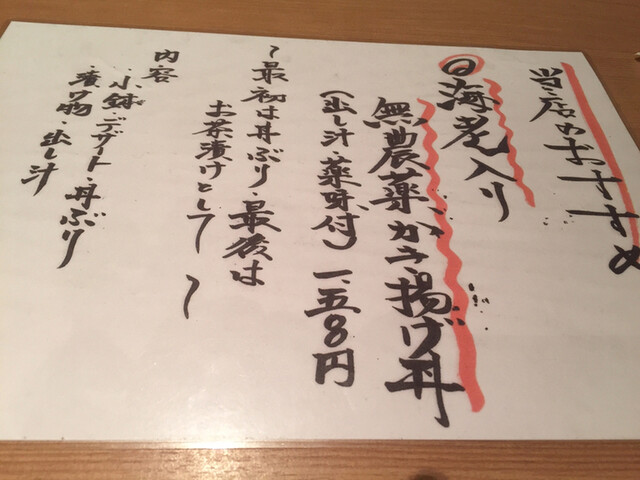 当店のおすすめ
◎海老入り
無農薬かき揚げ丼
(出し汁・薬味付) 一、五八〇円
〜最初は丼ぶり、最後は
お茶漬けとして〜
内容
小鉢・デザート・丼ぶり
漬物・出し汁